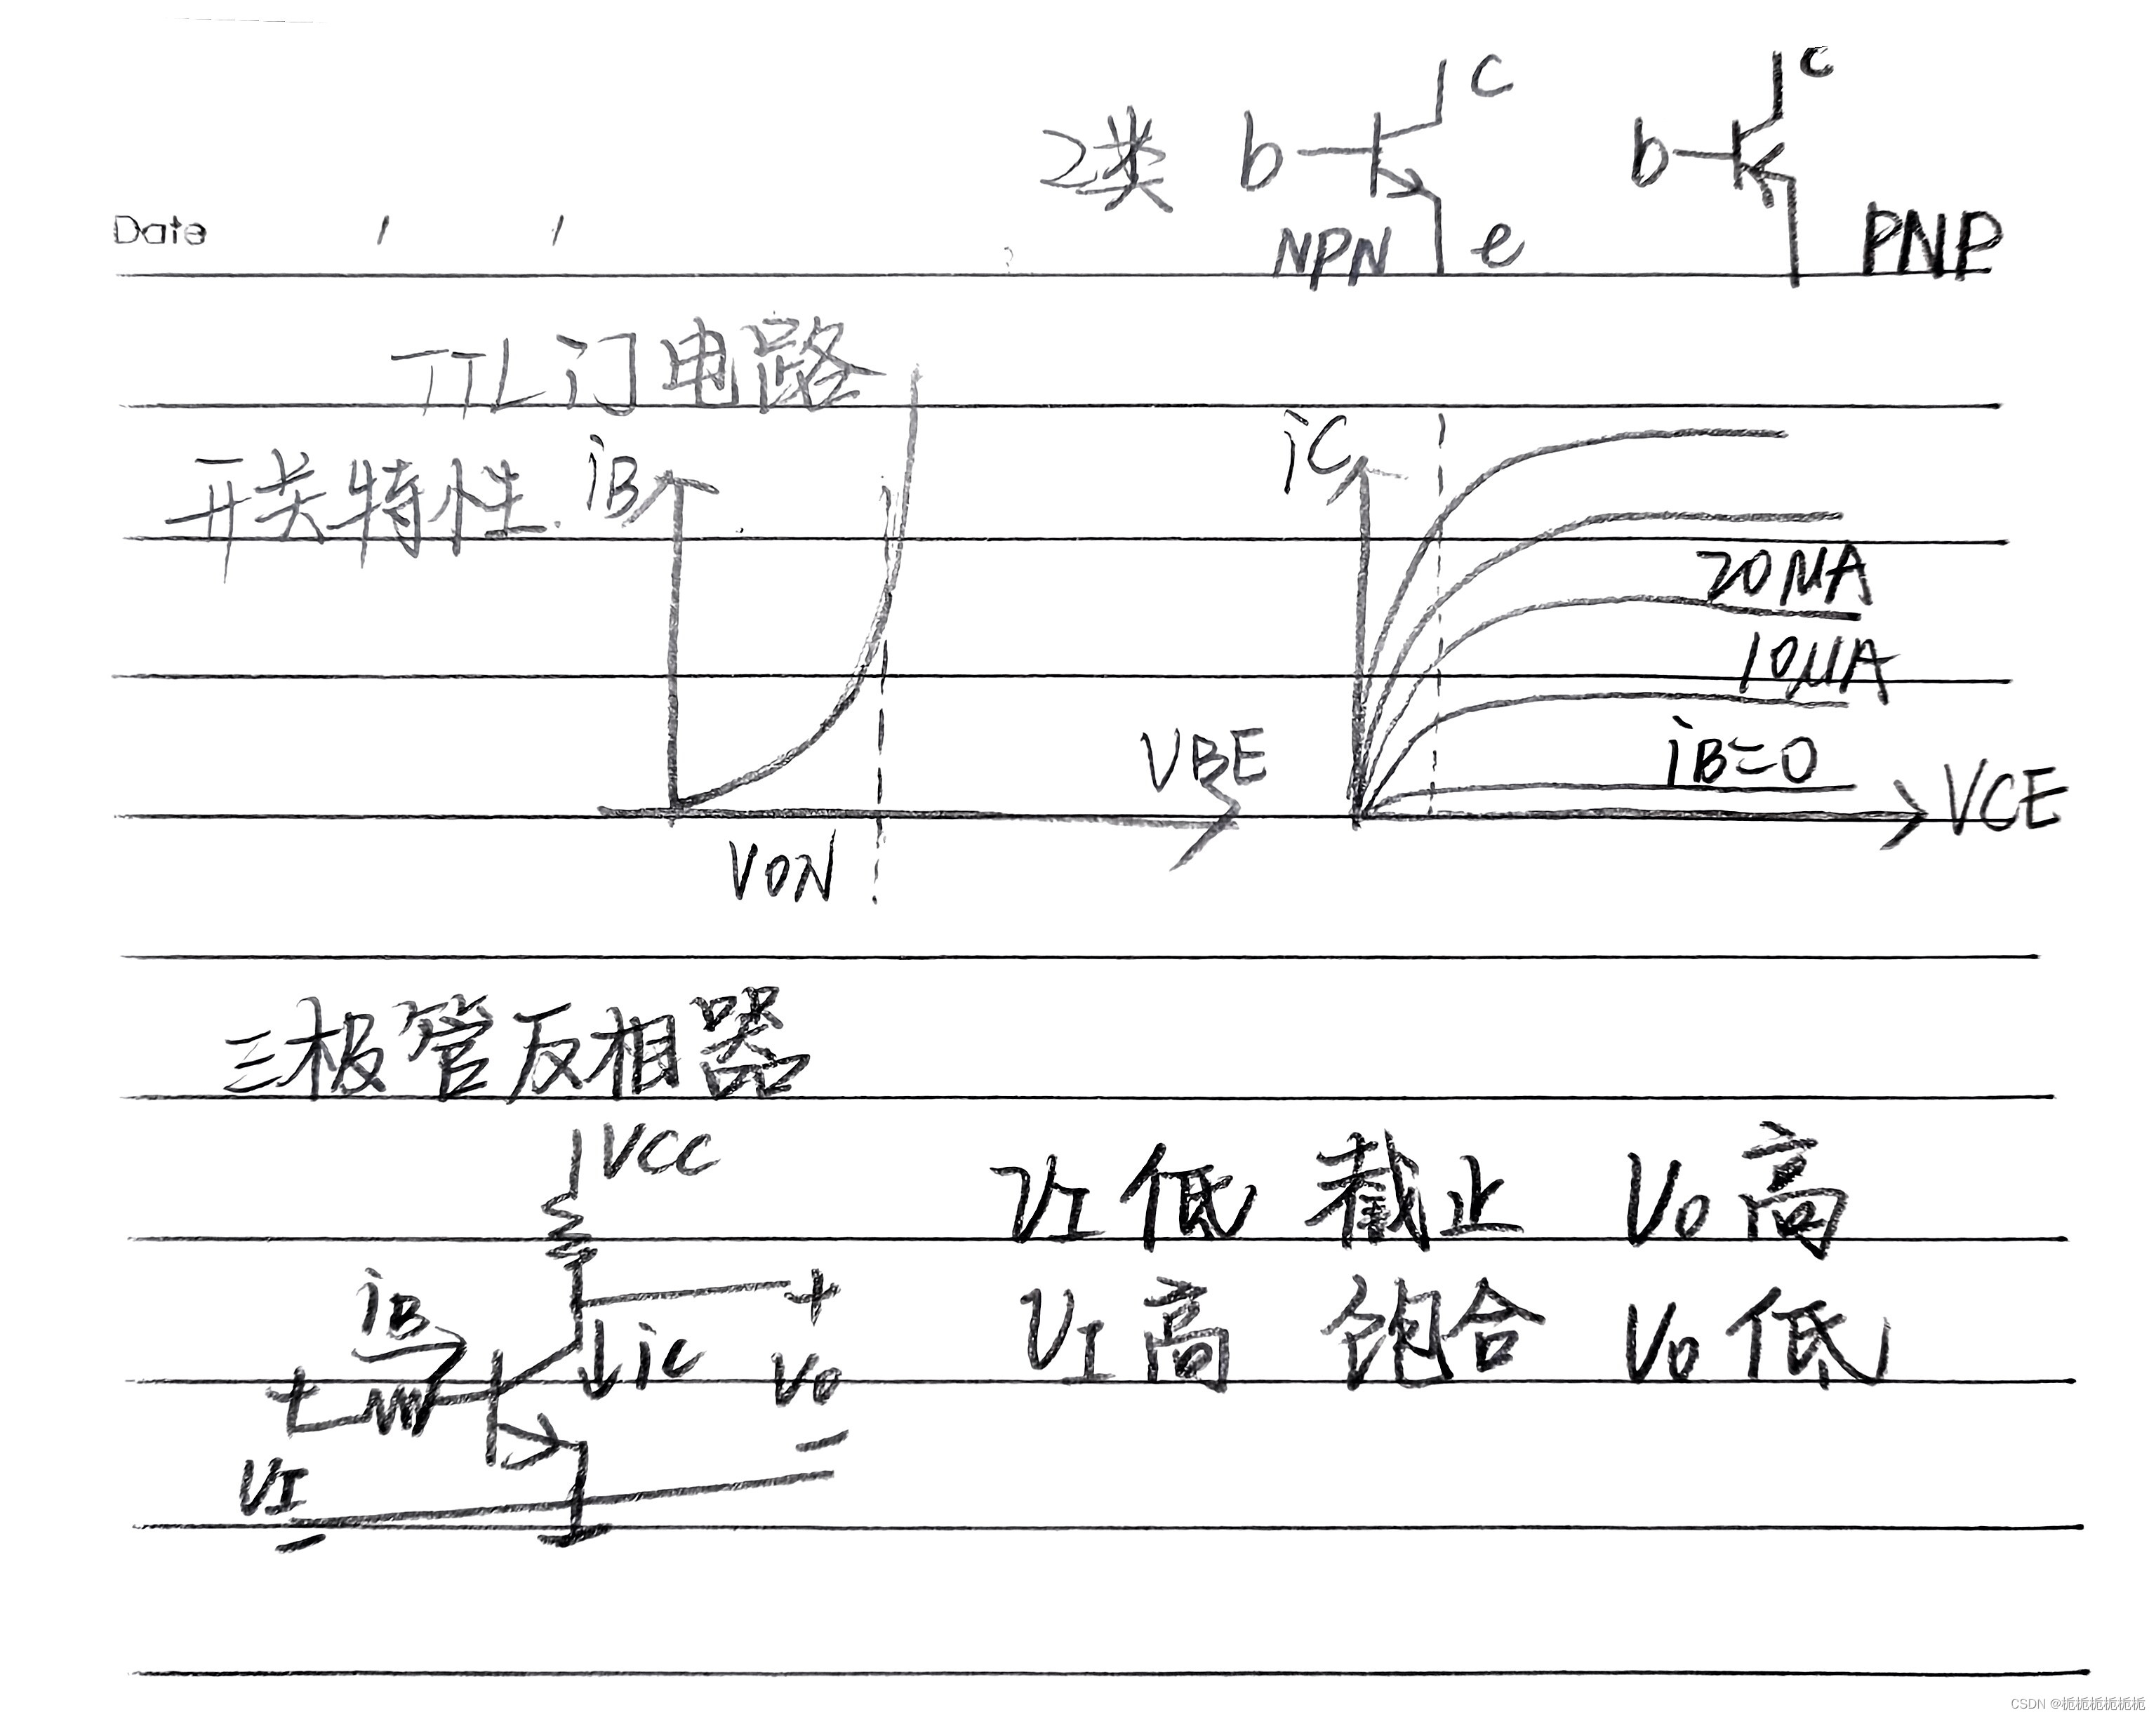 2类 b c NPN e b c PNP
Date / /
TTL门电路
开关特性. iB VBE VON
iC 20μA 10μA iB=0 VCE
三极管反相器
VCC
iB iC + VI - + VO -
VI低 截止 VO高
VI高 饱合 VO低
CSDN @栀栀栀栀栀栀